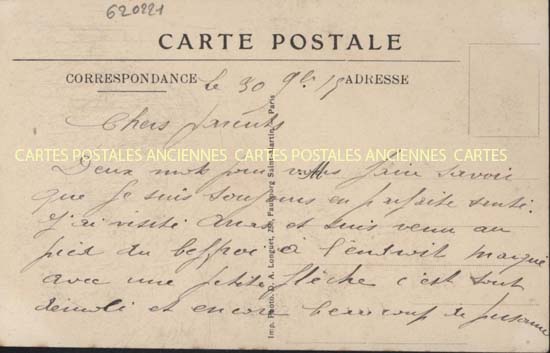 620221
CARTE POSTALE
CORRESPONDANCE
ADRESSE
le 30 9bre 15
Chers parents
CARTES POSTALES ANCIENNES CARTES POSTALES ANCIENNES CARTES
Deux mots pour vous faire savoir
que je suis toujours en parfaite santé.
J'ai visité Arras et suis venu au
pied du beffroi à l'endroit marqué
avec une petite flèche c'est tout
démoli et encore beaucoup de
Imp. Photo. D. A. Longuet, Faubourg Saint-Martin, Paris